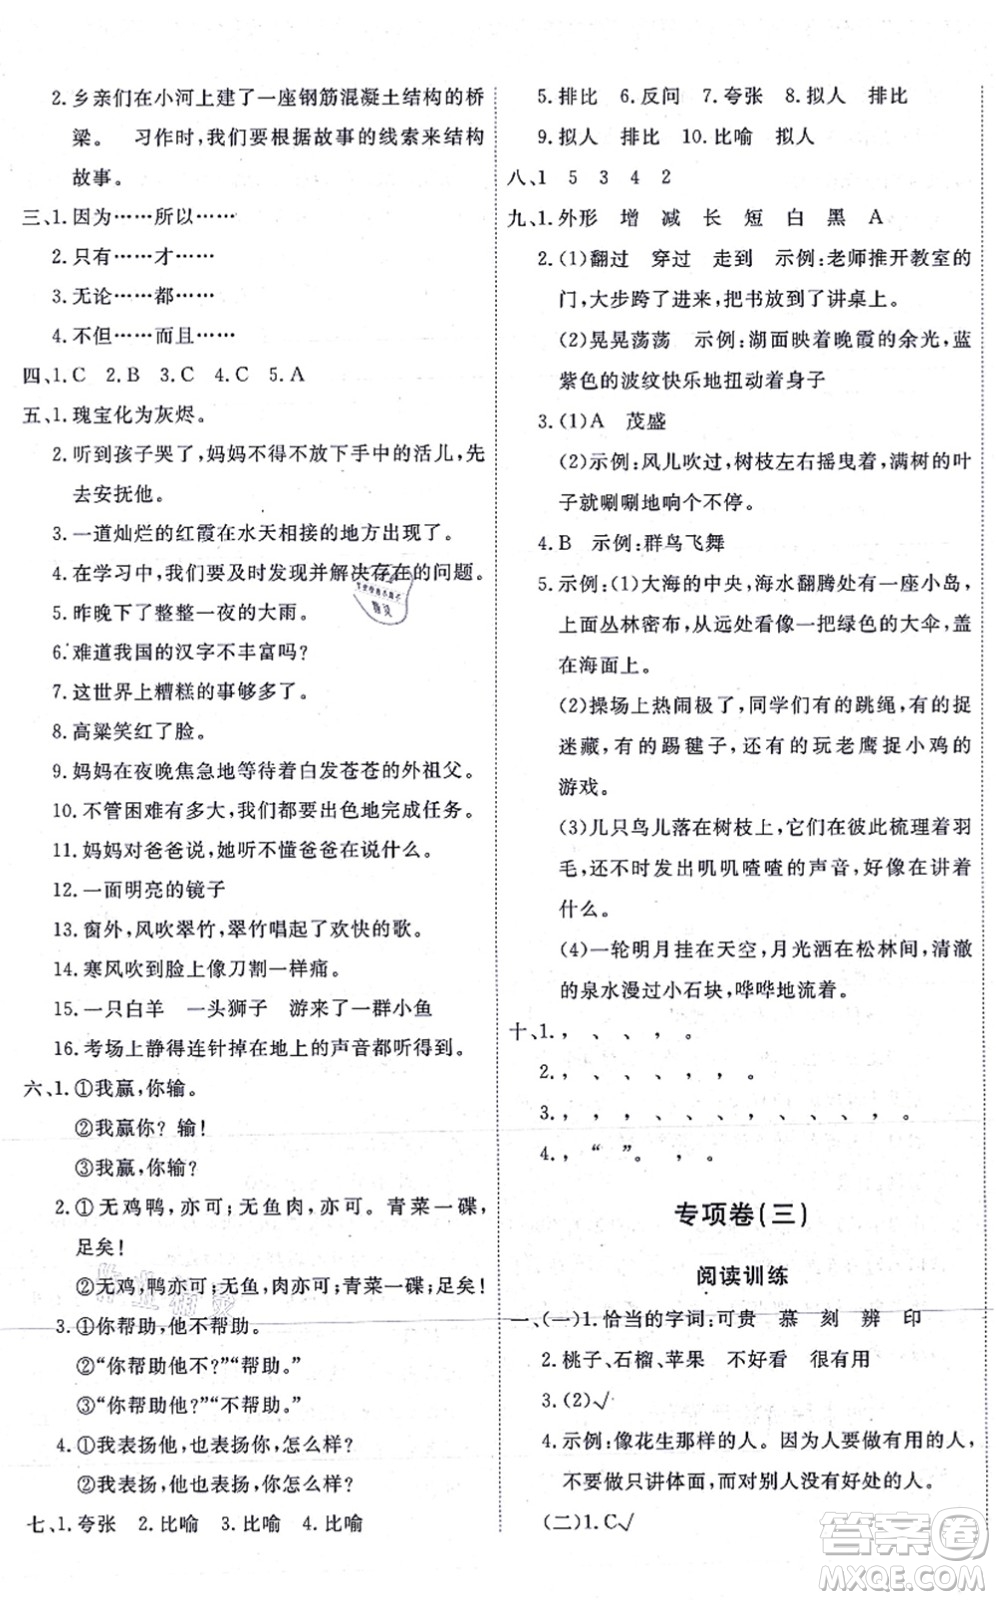 2. 乡亲们在小河上建了一座钢筋混凝土结构的桥
梁。　习作时,我们要根据故事的线索来结构
故事。
三、1. 因为……所以……
2. 只有……才……
3. 无论……都……
4. 不但……而且……
四、1. C　2. B　3. C　4. C　5. A
五、1. 瑰宝化为灰烬。
2. 听到孩子哭了,妈妈不得不放下手中的活儿,先
去安抚他。
3. 一道灿烂的红霞在水天相接的地方出现了。
4. 在学习中,我们要及时发现并解决存在的问题。
5. 昨晚下了整整一夜的大雨。
6. 难道我国的汉字不丰富吗?
7. 这世界上糟糕的事够多了。
8. 高粱笑红了脸。
9. 妈妈在夜晚焦急地等待着白发苍苍的外祖父。
10. 不管困难有多大,我们都要出色地完成任务。
11. 妈妈对爸爸说,她听不懂爸爸在说什么。
12. 一面明亮的镜子
13. 窗外,风吹翠竹,翠竹唱起了欢快的歌。
14. 寒风吹到脸上像刀割一样痛。
15. 一只白羊　一头狮子　游来了一群小鱼
16. 考场上静得连针掉在地上的声音都听得到。
六、1. ①我赢,你输。
②我赢你? 输!
③我赢,你输?
2. ①无鸡鸭,亦可;无鱼肉,亦可。青菜一碟,
足矣!
②无鸡,鸭亦可;无鱼,肉亦可;青菜一碟;足矣!
3. ①你帮助,他不帮助。
②“你帮助他不?”“帮助。”
③“你帮助他?”“不帮助。”
4. ①我表扬他,也表扬你,怎么样?
②我表扬,他也表扬你,怎么样?
七、1. 夸张　2. 比喻　3. 比喻　4. 比喻
5. 排比　6. 反问　7. 夸张　8. 拟人　排比
9. 拟人　排比　10. 比喻　拟人
八、1　5　3　4　2
九、1. 外形　增　减　长　短　白　黑　A
2. (1)翻过　穿过　走到　示例:老师推开教室的
门,大步跨了进来,把书放到了讲桌上。
(2)晃晃荡荡　示例:湖面映着晚霞的余光,蓝
紫色的波纹快乐地扭动着身子
3. (1)A　茂盛
(2)示例:风儿吹过,树枝左右摇曳着,满树的叶
子就唰唰地响个不停。
4. B　示例:群鸟飞舞
5. 示例:(1)大海的中央,海水翻腾处有一座小岛,
上面丛林密布,从远处看像一把绿色的大伞,盖
在海面上。
(2)操场上热闹极了,同学们有的跳绳,有的捉
迷藏,有的踢毽子,还有的玩老鹰捉小鸡的
游戏。
(3)几只鸟儿落在树枝上,它们在彼此梳理着羽
毛,还不时发出叽叽喳喳的声音,好像在讲着
什么。
(4)一轮明月挂在天空,月光洒在松林间,清澈
的泉水漫过小石块,哗哗地流着。
十、1. ,　、　、　,　。
2. ,　、　、　,　,　。
3. ,　,　、　,　、　、　、　,　、　。
4. ,　“　”。　,　。
专项卷(三)
阅读训练
一、(一)1. 恰当的字词:可贵　慕　刻　辨　印
2. 桃子、石榴、苹果　不好看　很有用
3. (2)√
4. 示例:像花生那样的人。因为人要做有用的人,
不要做只讲体面,而对别人没有好处的人。
(二)1. C√
答案卷
MXQE.COM